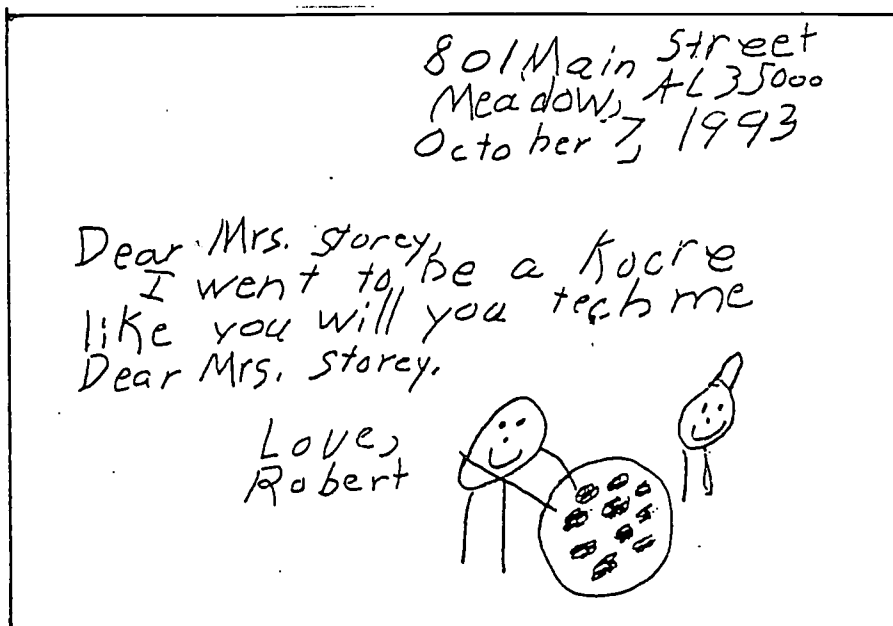 801 Main Street
Meadow, AL 35000
October 7, 1993
Dear Mrs. Storey,
I went to be a Kocre
like you will you tech me
Dear Mrs. Storey.
Love,
Robert